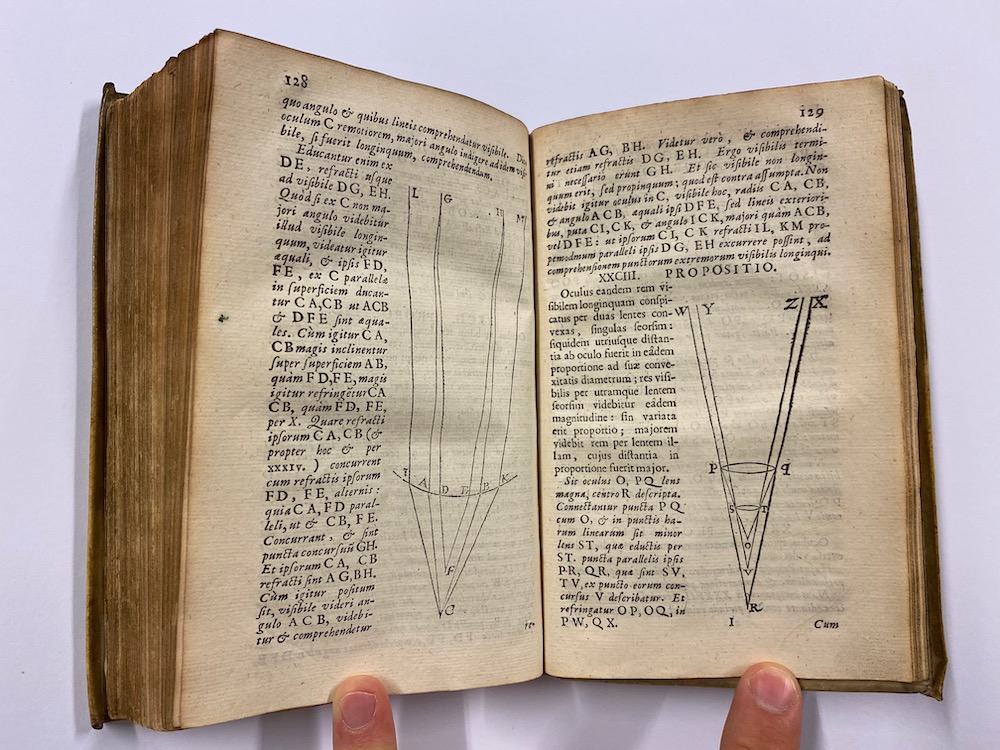 128
quo angulo & quibus lineis comprehendatur visibile.
oculum C remotiorem, majori angulo indigere ad idem visi-
bile, si fuerit longinquum, comprehendendum.
Educantur enim ex
DE, refracti usque
ad visibile DG, EH.
Quod si ex C non ma-
jori angulo videbitur
illud visibile longin-
quum, videatur igitur
æquali, & ipsis FD,
FE, ex C parallelæ
in superficiem ducan-
tur CA, CB ut ACB
& DFE sint æqua-
les. Cùm igitur CA,
CB magis inclinentur
super superficiem AB,
quàm FD, FE, magis
igitur refringẽtur CA
CB, quàm FD, FE,
per X. Quare refracti
ipsorum CA, CB (&
propter hoc & per
XXXIV.) concurrent
cum refractis ipsorum
FD, FE, alternis:
quia CA, FD paral-
leli, ut & CB, FE.
Concurrant, & sint
puncta concursuũ GH.
Et ipsorum CA, CB
refracti sint AG, BH.
Cùm igitur positum
sit, visibile videri an-
gulo ACB, videbi-
tur & comprehendetur
L G H M
A D E B K
F
C
re-
129
refractis AG, BH. Videtur verò, & comprehendi-
tur etiam refractis DG, EH. Ergo visibilis termi-
ni necessario erunt GH. Et sic visibile non longin-
quum erit, sed propinquum; quod est contra assumpta. Non
videbit igitur oculus in C, visibile hoc, radiis CA, CB,
& angulo ACB, æquali ipsi DFE, sed lineis exteriori-
bus, puta CI, CK, & angulo ICK, majori quàm ACB,
vel DFE: ut ipsorum CI, CK refracti IL, KM pro-
pemodum paralleli ipsis DG, EH excurrere possint, ad
comprehensionem punctorum extremorum visibilis longinqui.
XXCIII. PROPOSITIO.
Oculus eandem rem vi-
sibilem longinquam conspi-
catus per duas lentes con-
vexas, singulas seorsim:
siquidem utriusque distan-
tia ab oculo fuerit in eâdem
proportione ad suæ conve-
xitatis diametrum; res visi-
bilis per utramque lentem
seorsim videbitur eâdem
magnitudine: sin variata
erit proportio; majorem
videbit rem per lentem il-
lam, cujus distantia in
proportione fuerit major.
Sit oculus O, PQ lens
magna, centro R descripta.
Connectantur puncta PQ
cum O, & in punctis ha-
rum linearum sit minor
lens ST, quæ eductis per
ST. puncta parallelis ipsis
PR, QR, quæ sint SV,
TV, ex puncto eorum con-
cursus V describatur. Et
refringatur OP, OQ, in
PW, QX.
W Y Z X
P q
S T
O
V
R
I
Cum